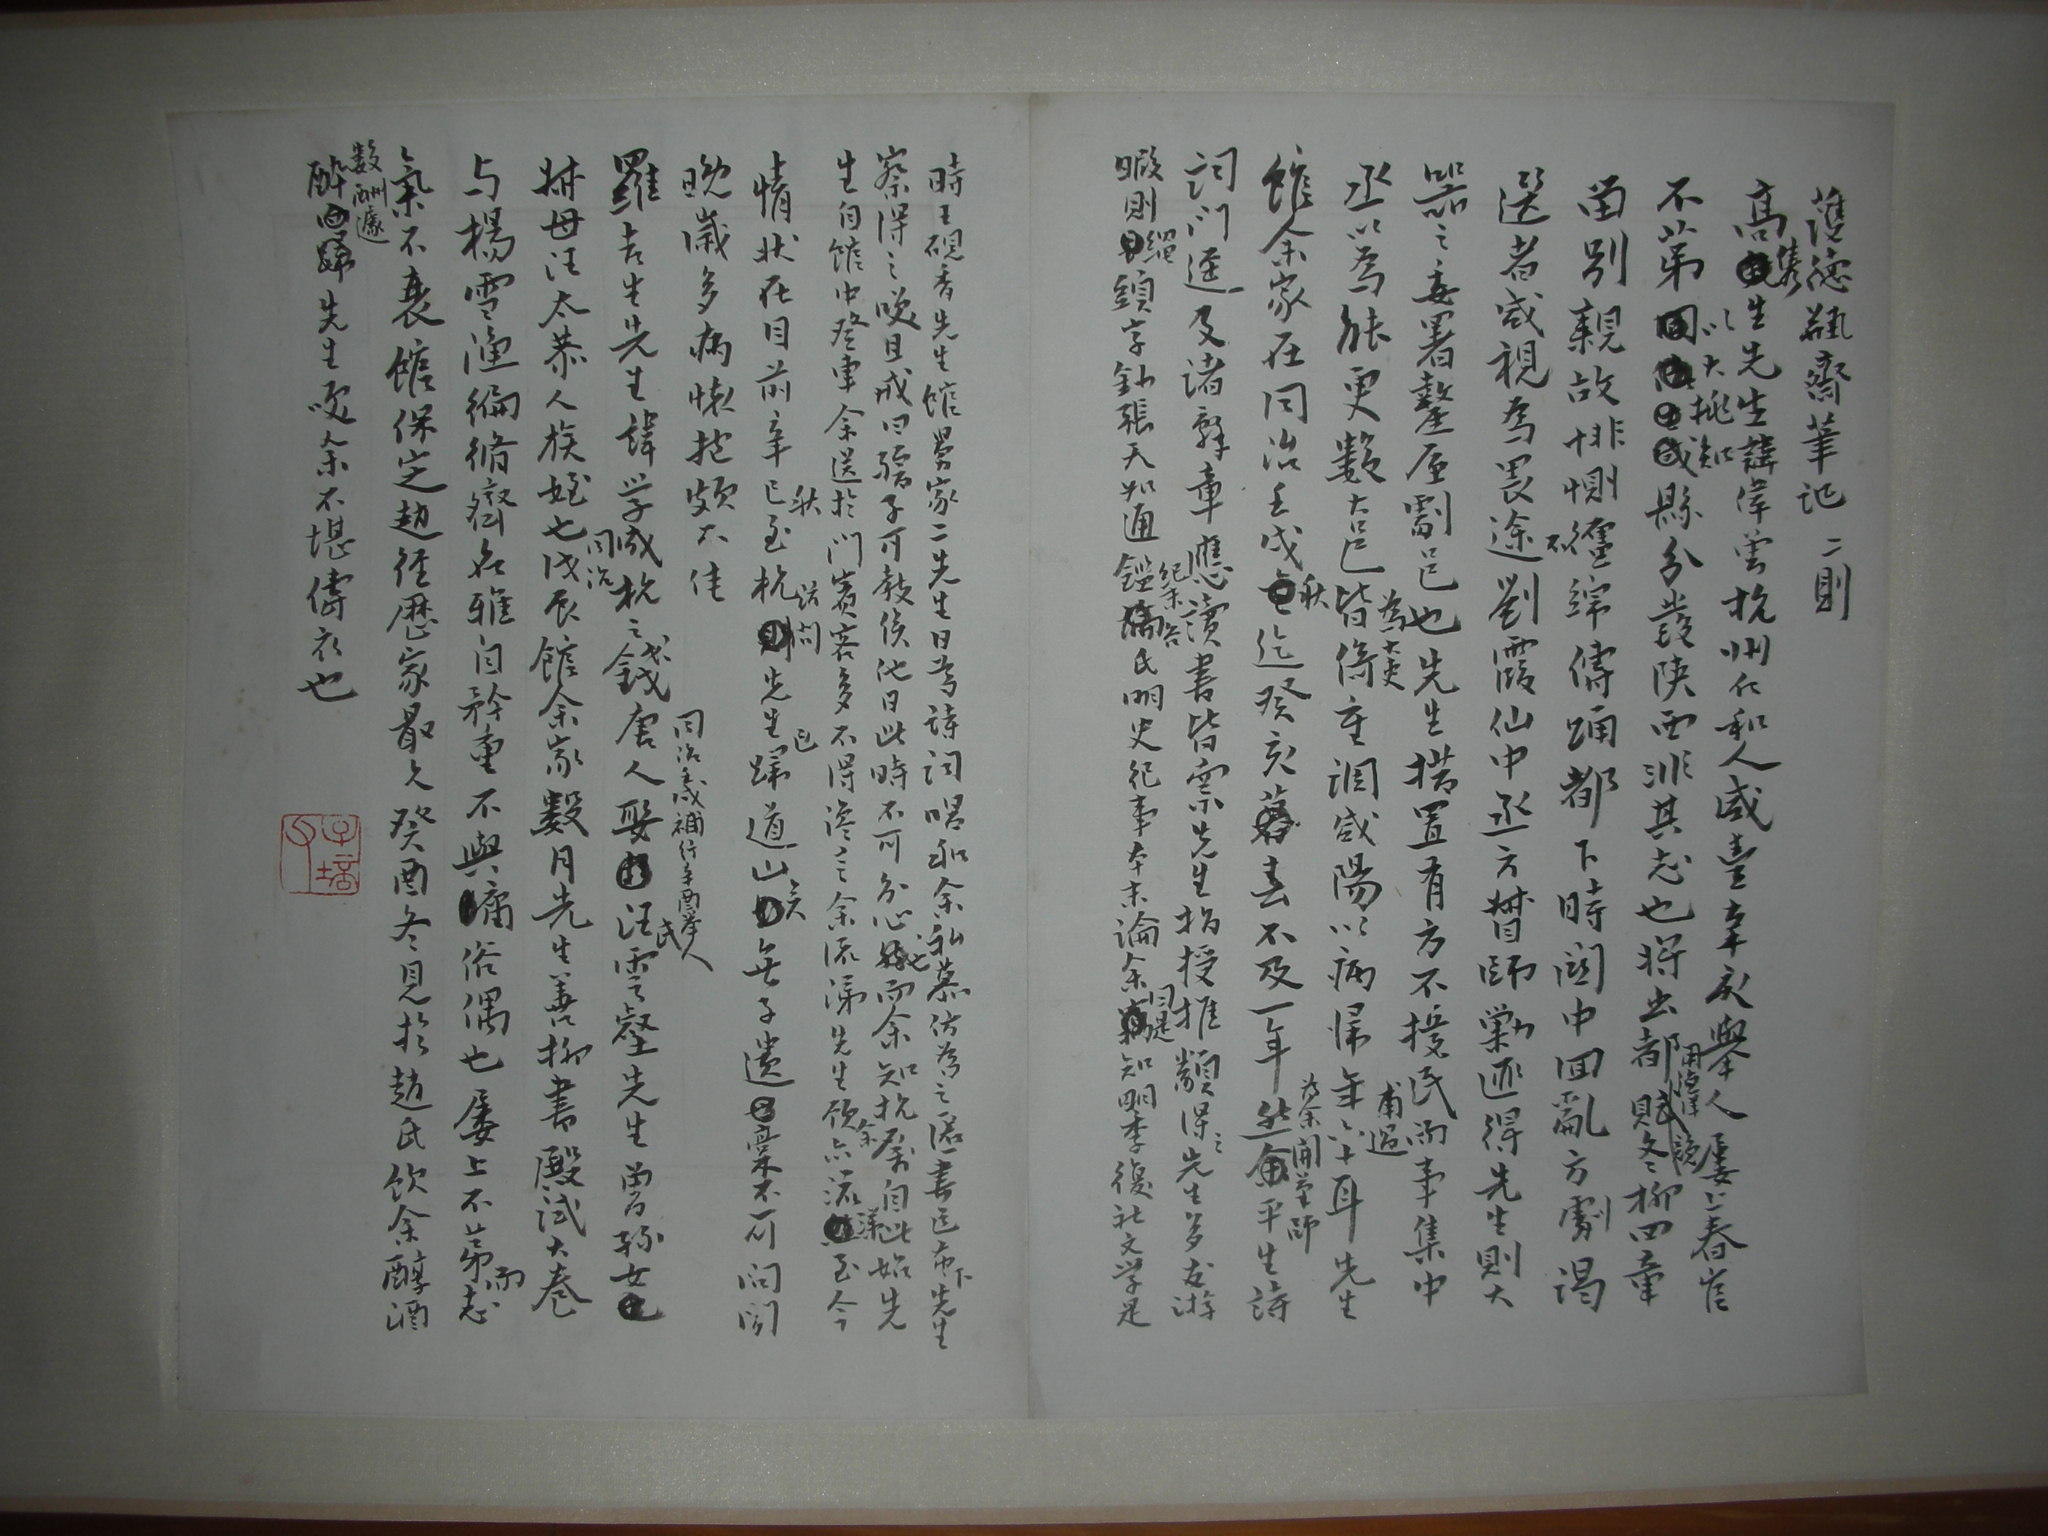 德瓻齋筆記 二則
高雋生先生諱偉曾杭州仁和人咸豐辛亥舉人屢上春官
不第以大挑知縣分發陝西非其志也將出都用漁洋韻賦冬柳四章
留別親故悱惻纏綿傳誦都下時關中回亂方劇謁
選者咸視為畏途劉霞仙中丞方督師勦匪得先生則大
器之委署盩厔劇邑也先生措置有方不擾民而事集中
丞以為能更數大邑皆倚為重調咸陽以病歸年甫過六十耳先生
館余家在同治壬戌秋迄癸亥春不及一年為余開蒙師平生詩
詞門逕及諸辭章應讀書皆稟先生指授推類得之先生多友游
暇則縚頭字鈔張天如通鑑紀事谷氏明史紀事本末論余由是知明季復社文學是
時王硯香先生館舅家二先生日為詩詞唱和余私慕仿為之匿書匹布下先生
察得之喚且戒曰孺子可教俟他日此時不可分心也而余知抗厲自此始先
生自館中登車余送於門賓客多不得語言余流涕先生顧余亦流涕至今
情狀在目前辛巳秋至杭訪問先生已歸道山矣無子遺稾不可問聞
晚歲多病懶抱頗不佳
羅吉生先生諱學咸杭之錢唐人同治戊辰補行辛酉舉人娶汪氏汪雲壑先生曾孫女
叔母汪太恭人族姪也同治戊辰館余家數月先生善柳書殿試大卷
与楊雪漁編脩齊名雅自矜重不與庸俗偶也屢上不第而志
氣不衰館保定趙徑歷家最久癸酉冬見於趙氏飲余醇酒
數酬遽醉先生嘆余不堪傳衣也